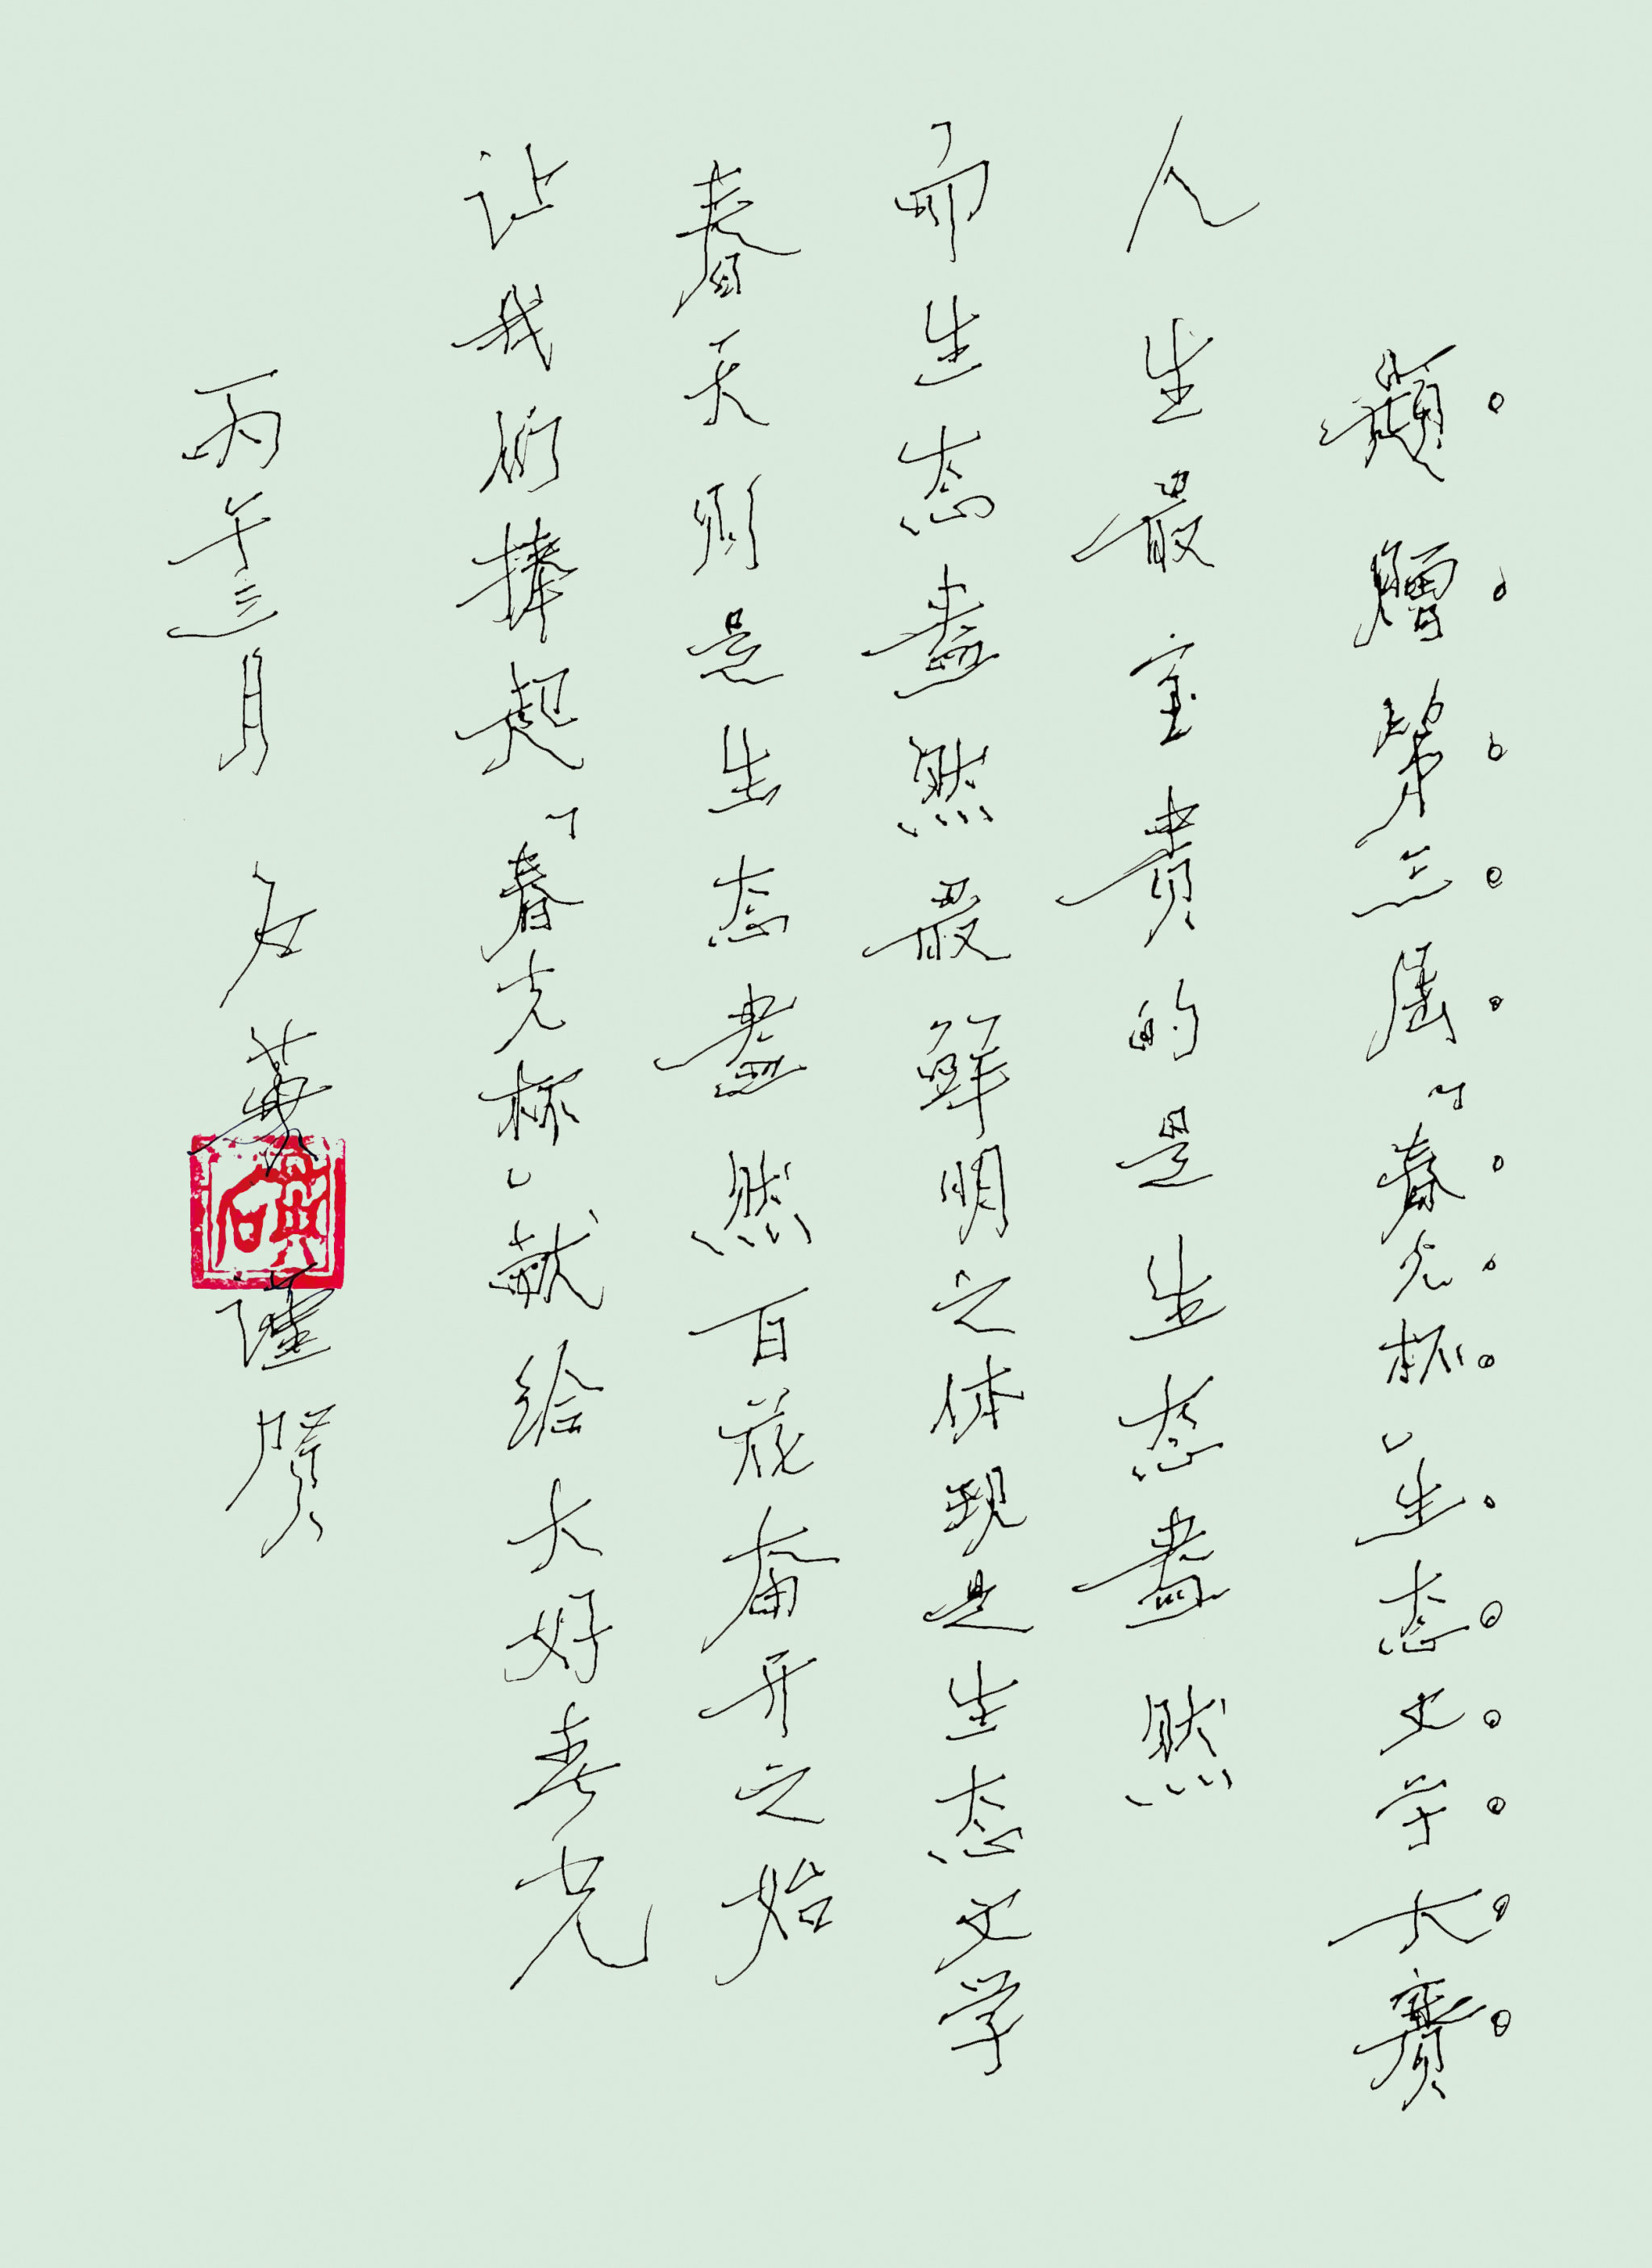 题赠第三届「春光杯」生态文学大赛
人生最宝贵的是生态盎然
而生态盎然最鲜明之体现是生态文学
春天则是生态盎然百花齐开之始
让我们捧起「春光杯」献给大好春光
丙午三月 石英谨贺
石英